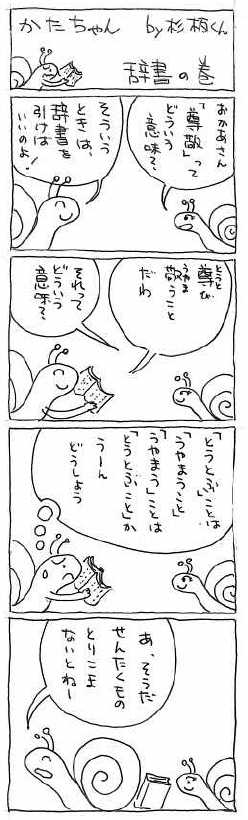 かたちゃん by杉柄くん
辞書の巻
おかあさん
「尊敬」って
どういう
意味?
そういう
ときは、
辞書を
引けば
いいのよ!
尊び
とうと
敬うこと
うやま
だわ
それって
どういう
意味?
「とうとぶ」ことは
「うやまうこと」
「うやまう」ことは
「とうとぶこと」か
うーん
どうしよう
あ、そうだ
せんたくもの
とりこま
ないとねー